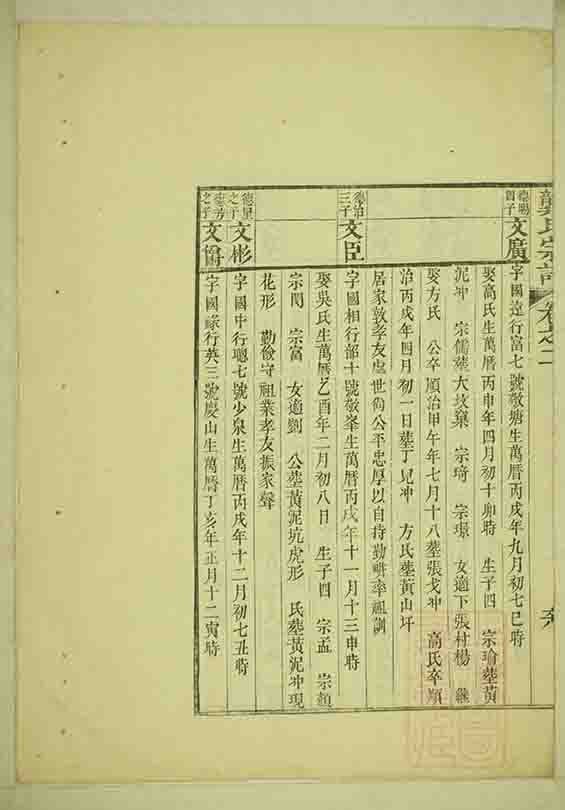 龔氏宗譜 卷之二
德賜
四子
文廣
字國遠行富七號敬塘生萬曆丙戌年九月初七巳時
娶高氏生萬曆丙申年四月初十卯時 生子四 宗瑜葬黃
泥冲 宗儒葬大坟窠 宗琦 宗璟 女適下張村楊 繼
娶方氏 公卒順治甲午年七月十八葬張戈冲 高氏卒順
治丙戌年四月初一日葬丁兒冲 方氏葬黃山圩
居家敦孝友處世尚公平忠厚以自持勤畊率祖訓
德治
三子
文臣
字國相行部十號敬峯生萬曆丙戌年十一月十三申時
娶吳氏生萬曆乙酉年二月初八日 生子四 宗孟 宗顏
宗閔 宗富 女適劉 公葬黃泥坑虎形 氏葬黃泥冲現
花形 勤儉守祖業孝友振家聲
德里
之子
文彬
字國中行聰七號少泉生萬曆丙戌年十二月初七丑時
德芳
之子
字國祿行英三號慶山生萬曆丁亥年正月十二寅時